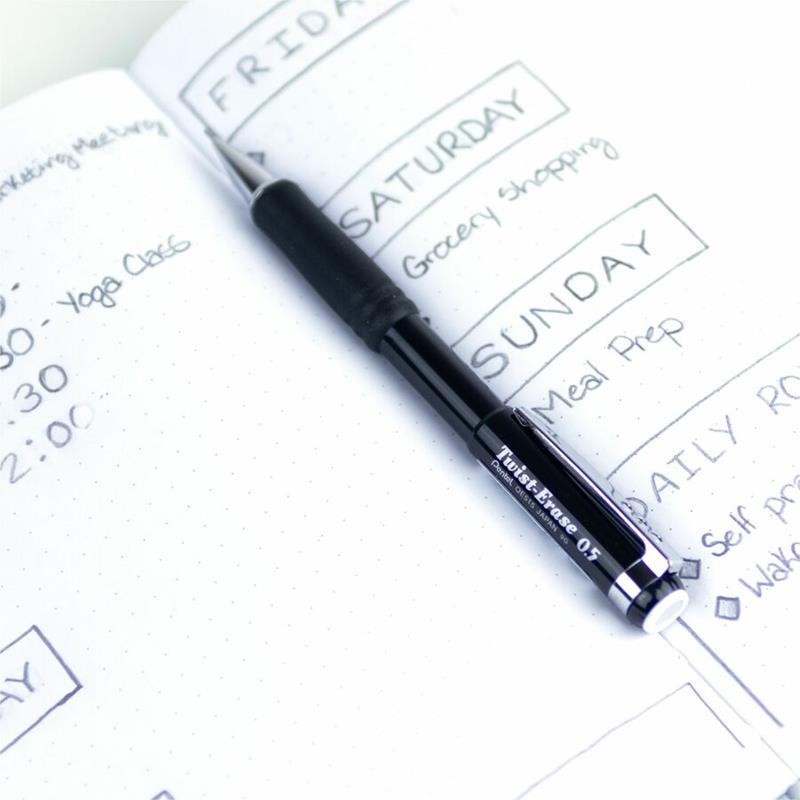 Meeting
- Yoga Class
30
2:00
AY
FRIDA
SATURDAY
Grocery Shopping
SUNDAY
Meal Prep
DAILY RO
Self pra
Wake
Twist-Erase 0.5
Pentel QE515 JAPAN